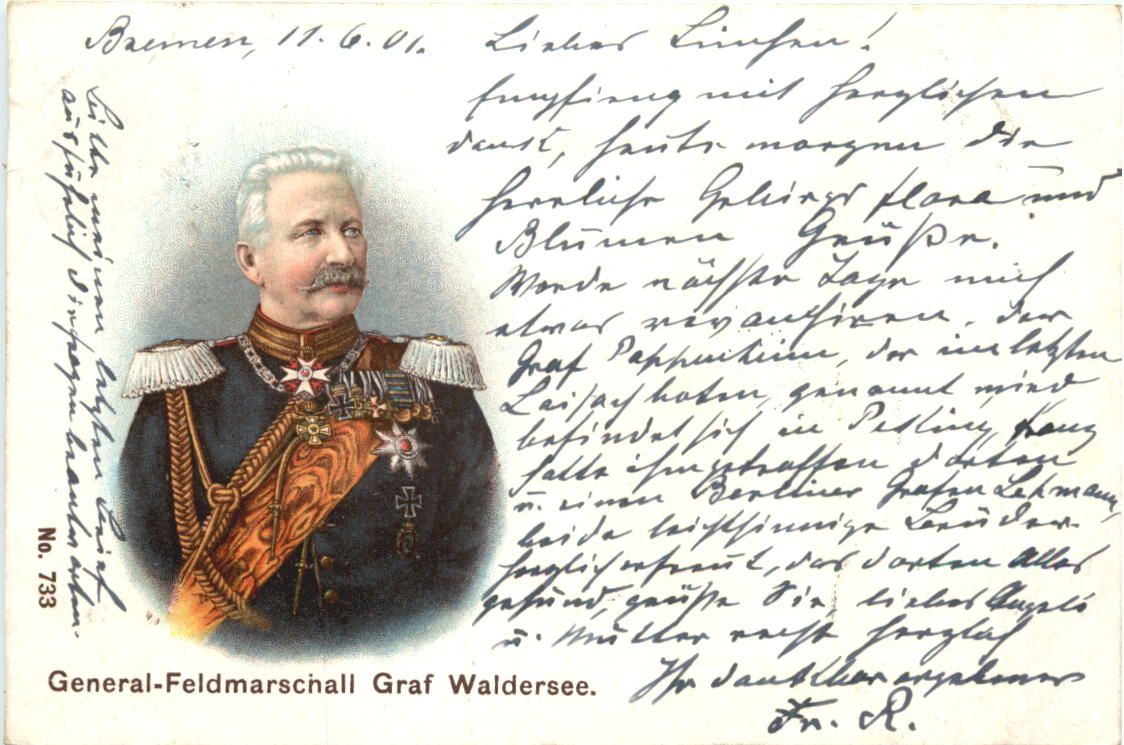 Bremen, 11.6.01.
Liebes Linchen!
Empfieng mit herzlichen
dank, heute morgen die
herrliche Gebirgsflora und
Blumen Grüße.
Werde nächste Tage mich
etwas revanchiren. der
Graf Pappenheim, der im letzten
Laisachboten, genannt wird
befindet sich in Peking, Franz
hatte ihn getroffen dorten
u. einen Berliner Grafen Lehmann,
beide leichtsinnige Brüder.
herzlich erfreut, das dorten Alles
gesund, grüße Sie, liebes Angeli
u. Mutter recht herzlich
Ihr dankbar ergebener
Fr. R.
Bitte meinen letzten Brief
ausführlich beantworten.
No. 733
General-Feldmarschall Graf Waldersee.